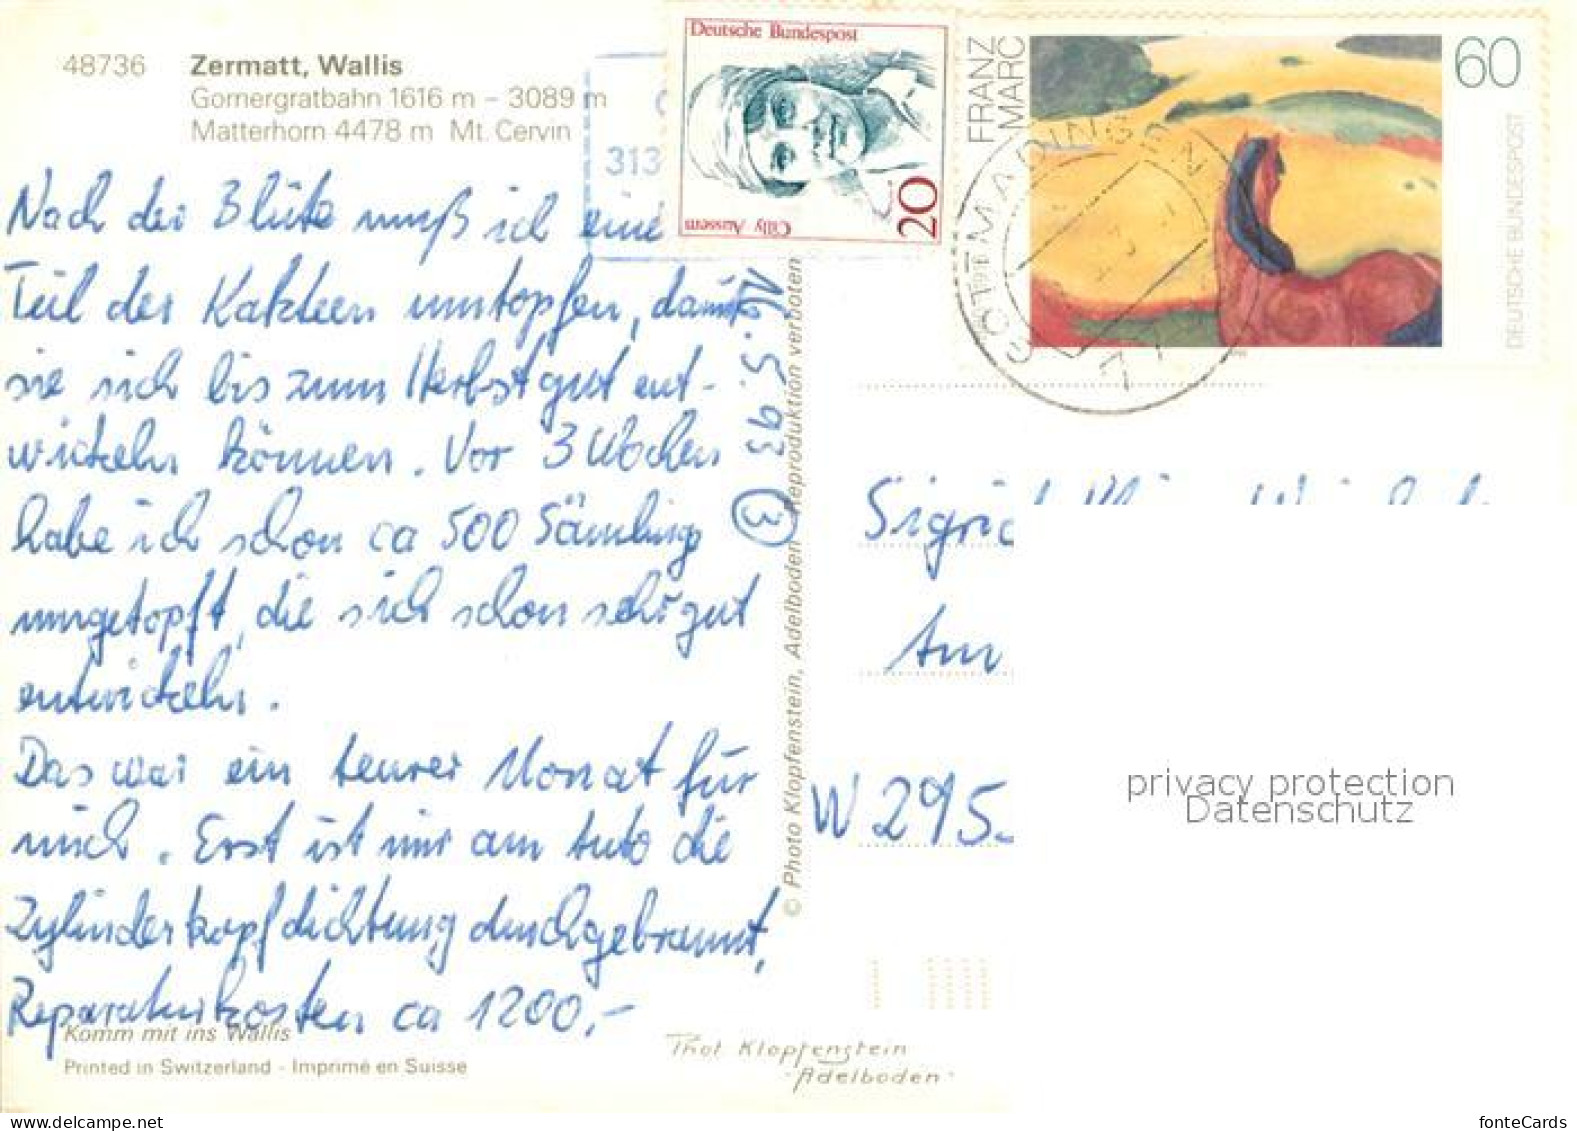 48736 Zermatt, Wallis
Gornergratbahn 1616 m – 3089 m
Matterhorn 4478 m Mt. Cervin
Deutsche Bundespost
Cilly Aussem
20
FRANZ
MARC
60
DEUTSCHE BUNDESPOST
GOTTMADINGEN
77
313
Nach der Blüte muß ich eine
Teil der Kakteen umtopfen, damit
sie sich bis zum Herbst gut ent-
wickeln können. Vor 3 Wochen
habe ich schon ca 500 Sämling
umgetopft, die sich schon sehr gut
entwickeln.
Das war ein teurer Monat für
mich. Erst ist mir am Auto die
Zylinderkopfdichtung durchgebrannt,
Reparaturkosten ca 1200,-
5.93 ③
© Photo Klopfenstein, Adelboden Reproduktion verboten
Am
W 295
privacy protection
Datenschutz
Komm mit ins Wallis
Printed in Switzerland - Imprimé en Suisse
Phot Klopfenstein
Adelboden
www.delcampe.net
fonteCards